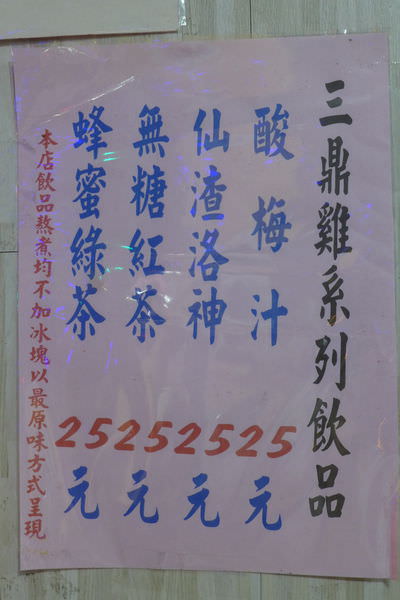 三鼎雞系列飲品
酸梅汁 25元
仙渣洛神 25元
無糖紅茶 25元
蜂蜜綠茶 25元
本店飲品熬煮均不加冰塊以最原味方式呈現